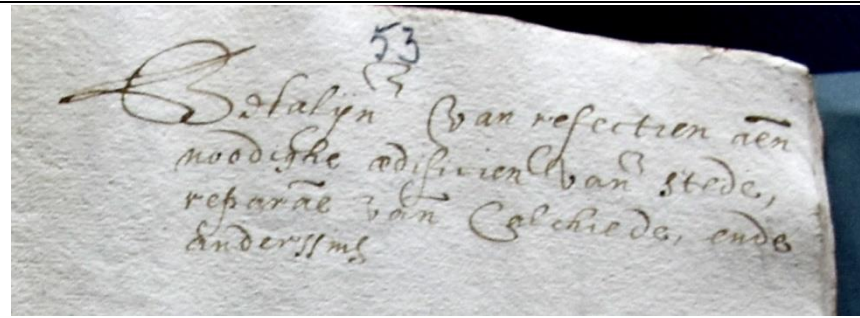 53
Betalijn van refectien aen
noodighe ædificien van stede,
reparae van Calchiede, ende
anderssins